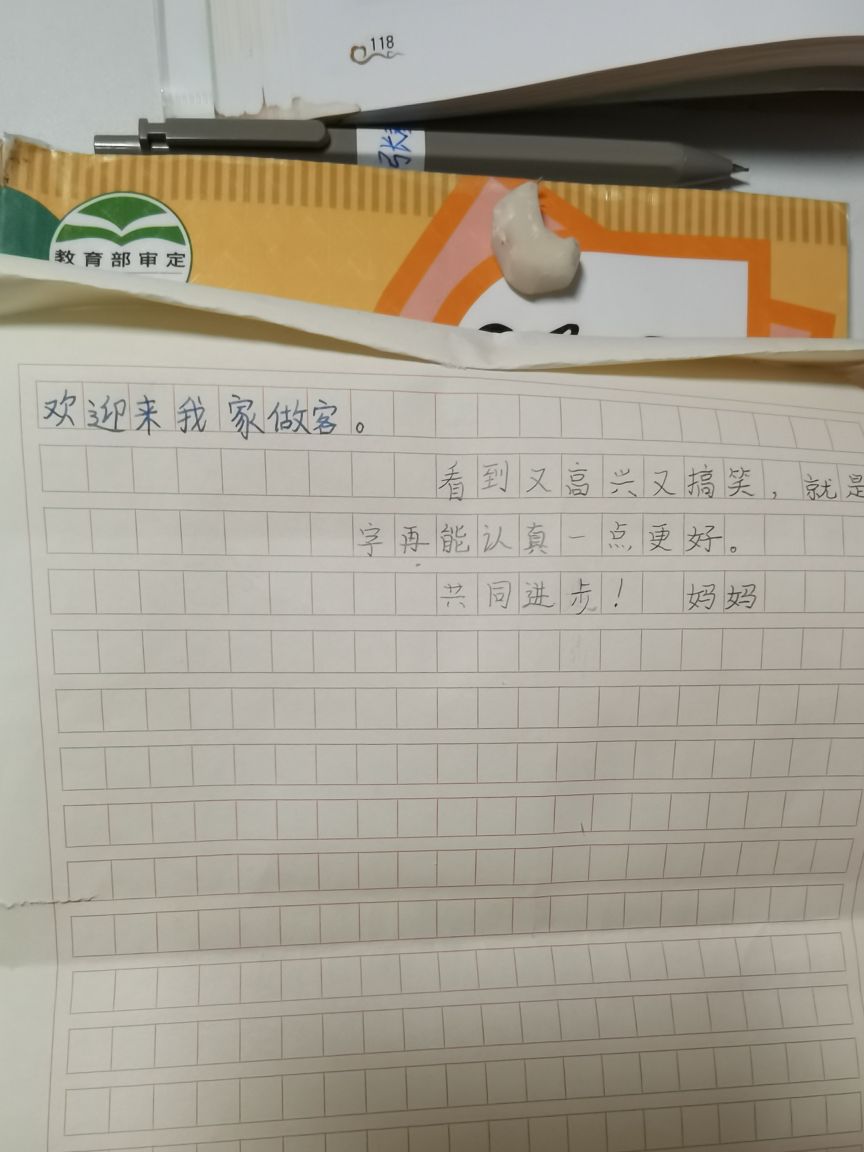 118
教育部审定
欢迎来我家做客。
看到又高兴又搞笑，就是
字再能认真一点更好。
共同进步！ 妈妈